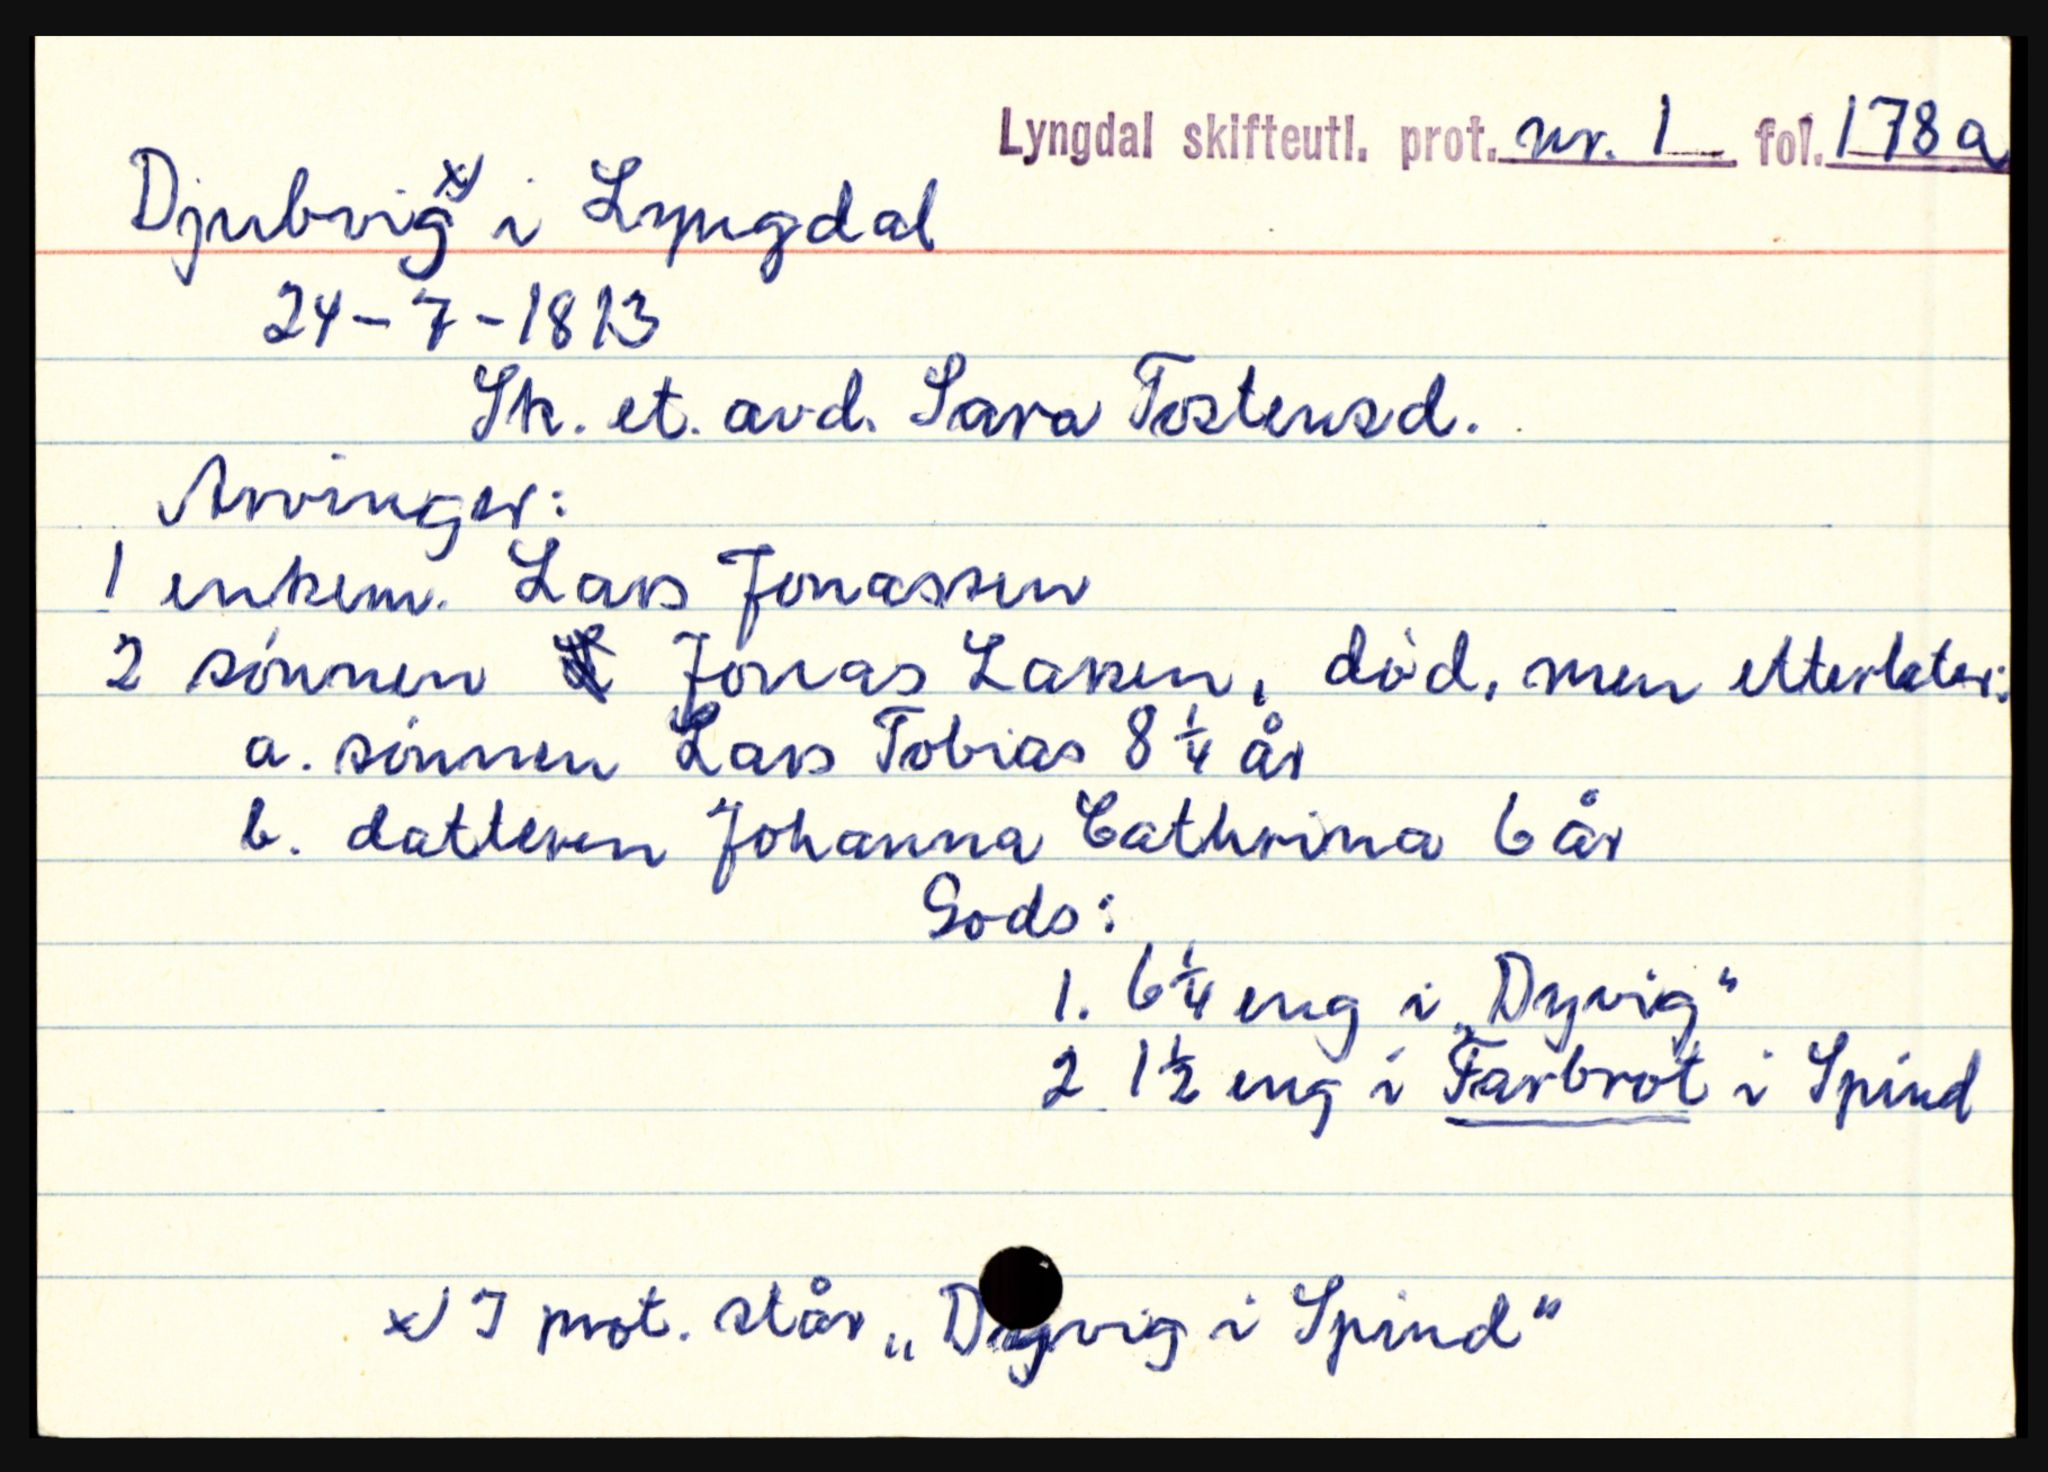 Lyngdal skifteutl. prot. nr. 1 fol. 178a
Djubvig x) i Lyngdal
24-7-1813
Sk. et. avd. Sara Tostensd.
Arvinger:
1 enkem. Lars Jonassen
2 sønnen Jonas Larsen, død, men etterlater:
a. sønnen Lars Tobias 8 1/4 år
b. datteren Johanna Cathrina 6 år
Gods:
1. 6 1/4 eng i „Dyvig“
2 1 1/2 eng i Farbrot i Spind
x) I prot. står „Dyvig i Spind“